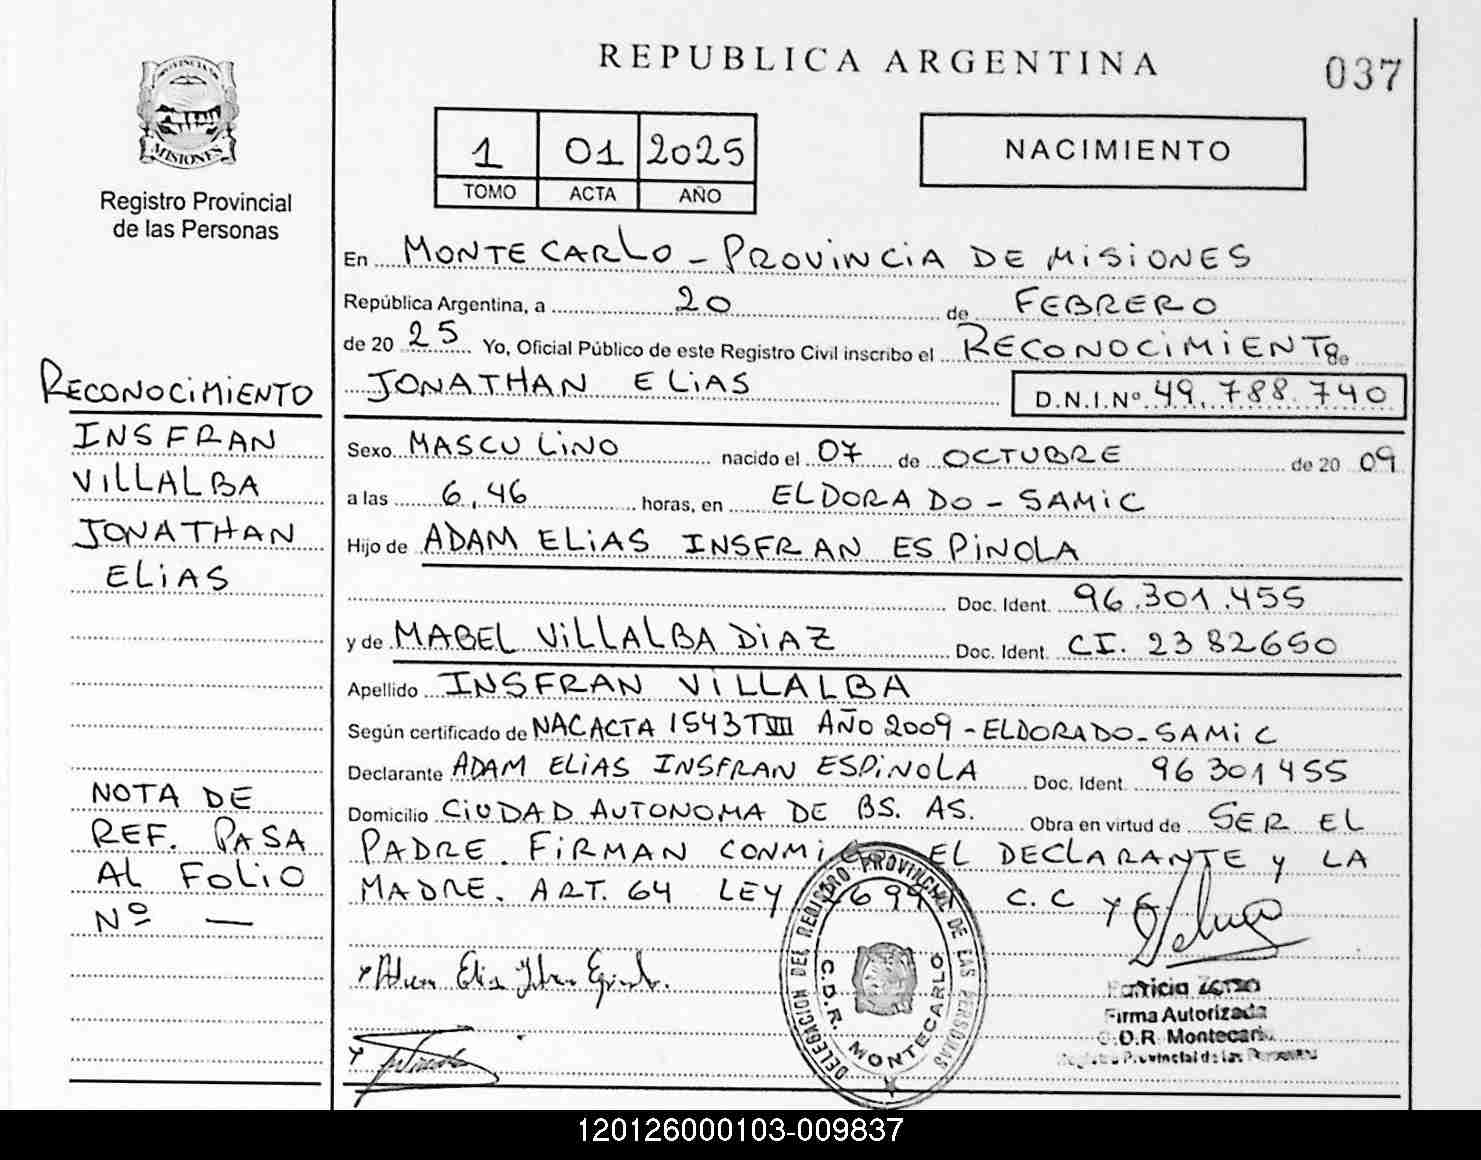 REPUBLICA ARGENTINA
037
PROVINCIA DE
MISIONES
Registro Provincial
de las Personas
1 01 2025
TOMO ACTA AÑO
NACIMIENTO
En MONTECARLO - PROVINCIA DE MISIONES
República Argentina, a 20 de FEBRERO
de 20 25 Yo, Oficial Público de este Registro Civil inscribo el RECONOCIMIENTO de
JONATHAN ELIAS D.N.I.Nº 49.788.740
Sexo MASCULINO nacido el 07 de OCTUBRE de 20 09
a las 6,46 horas, en ELDORADO - SAMIC
Hijo de ADAM ELIAS INSFRAN ESPINOLA
Doc. Ident. 96.301.455
y de MABEL VILLALBA DIAZ Doc. Ident. CI. 2382650
Apellido INSFRAN VILLALBA
Según certificado de NAC ACTA 1543 T III AÑO 2009 - ELDORADO - SAMIC
Declarante ADAM ELIAS INSFRAN ESPINOLA Doc. Ident. 96301455
Domicilio CIUDAD AUTONOMA DE BS. AS. Obra en virtud de SER EL
PADRE. FIRMAN EL DECLARANTE Y LA
MADRE. ART. 64 LEY C.C Y C
RECONOCIMIENTO
INSFRAN
VILLALBA
JONATHAN
ELIAS
NOTA DE
REF. PASA
AL FOLIO
Nº —
DELEGACION DEL REGISTRO PROVINCIAL DE LAS PERSONAS
C.D.R. MONTECARLO
Patricia
Firma Autorizada
C.D.R. Montecarlo
Registro Provincial de las Personas
120126000103-009837